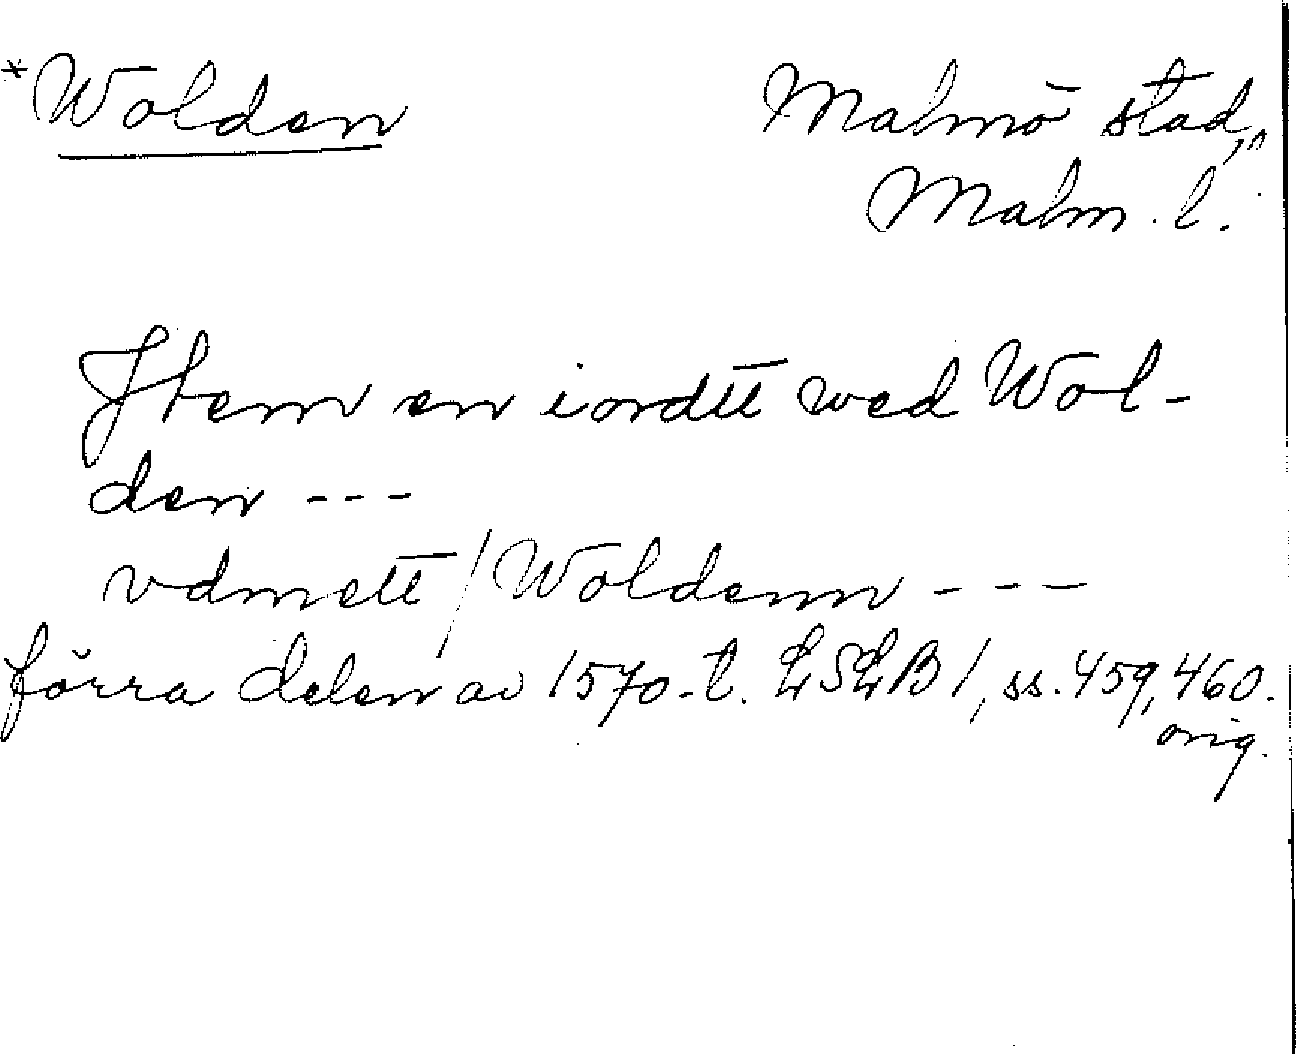 *Wolden
Malmö stad,
Malm. l.
Jtem en iordtt wed Wol-
den ---
vdmett / Woldenn ---
förra delen av 1570-t. LSLB 1, ss. 459, 460.
orig.